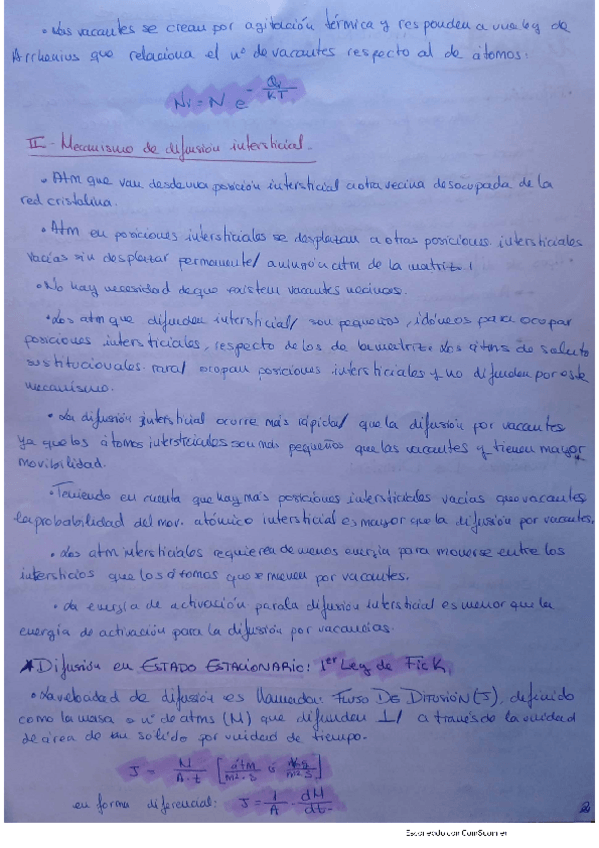 • Las vacantes se crean por agitación térmica y responden a una ley de
Arrhenius que relaciona el nº de vacantes respecto al de átomos:
Nv = N e^-Qv/KT
II - Mecanismo de difusión intersticial.
• Atm que van desde una posición intersticial a otra vecina desocupada de la
red cristalina.
• Atm en posiciones intersticiales se desplazan a otras posiciones intersticiales
vacías sin desplazar permanente/ a ningún atm de la matriz.
• No hay necesidad de que existan vacantes vecinas.
• Los atm que difunden intersticial/ son pequeños, idóneos para ocupar
posiciones intersticiales, respecto de los de la matriz. Los átms de soluto
sustitucionales rara/ ocupan posiciones intersticiales y no difunden por este
mecanismo.
• La difusión intersticial ocurre más rápida/ que la difusión por vacantes
ya que los átomos intersticiales son más pequeños que las vacantes y tienen mayor
movibilidad.
• Teniendo en cuenta que hay más posiciones intersticiales vacías que vacantes
la probabilidad del mov. atómico intersticial es mayor que la difusión por vacantes.
• Los atm intersticiales requieren de menos energía para moverse entre los
intersticios que los átomos que se mueven por vacantes.
• La energía de activación para la difusión intersticial es menor que la
energía de activación para la difusión por vacancias.
* Difusión en ESTADO ESTACIONARIO: 1er Ley de Fick.
• La velocidad de difusión es llamada: FLUJO DE DIFUSIÓN (J), definido
como la masa o nº de atms (M) que difunden ⊥/ a través de la unidad
de área de un sólido por unidad de tiempo.
J = M/A·t [atm/m²·s ó kg/m²·s]
en forma diferencial: J = 1/A · dM/dt
2
Escaneado con CamScanner